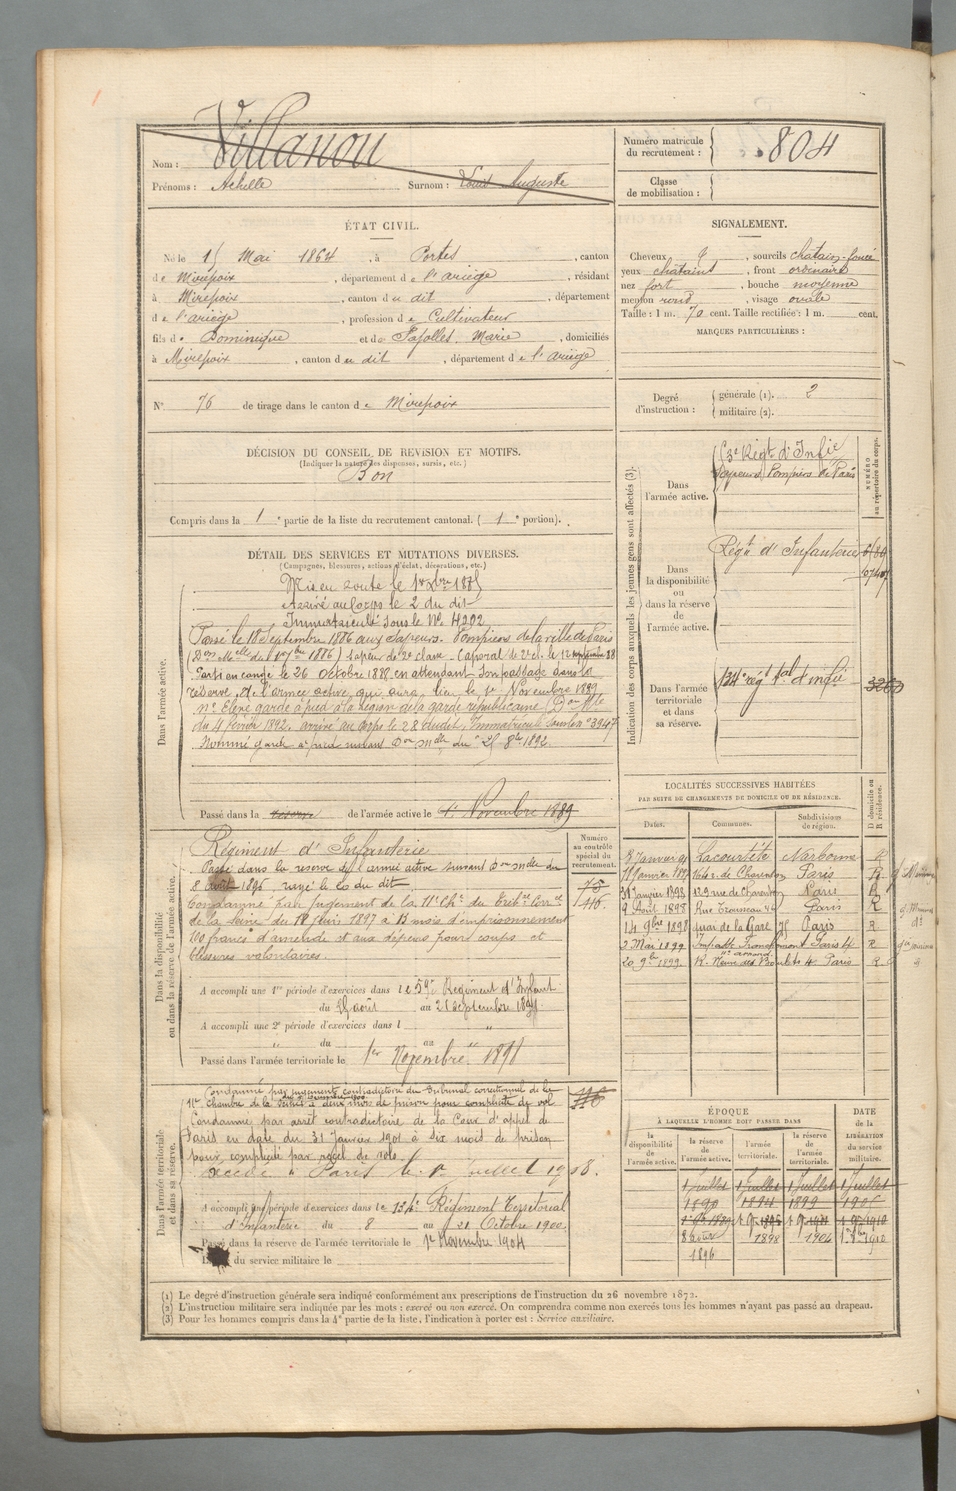 Nom : Villanou
Prénoms : Achille Surnom : Louis Auguste
Numéro matricule du recrutement : 804
Classe de mobilisation :
ÉTAT CIVIL.
Né le 15 Mai 1864, à Portes, canton
de Mirepoix, département de l'ariège, résidant
à Mirepoix, canton du dit, département
de l'ariège, profession de Cultivateur
fils de Dominique et de Marie, domiciliés
à Mirepoix, canton du dit, département de l'ariège
N° 76 de tirage dans le canton de Mirepoix
SIGNALEMENT.
Cheveux, sourcils châtain-foncé
yeux châtains, front ordinaire
nez fort, bouche moyenne
menton rond, visage ovale
Taille : 1 m. 70 cent. Taille rectifiée : 1 m. cent.
MARQUES PARTICULIÈRES :
Degré d'instruction : générale (1). 2
militaire (2).
DÉCISION DU CONSEIL DE REVISION ET MOTIFS.
(Indiquer la nature des dispenses, sursis, etc.)
Bon
Compris dans la 1e partie de la liste du recrutement cantonal. (1e portion).
DÉTAIL DES SERVICES ET MUTATIONS DIVERSES.
(Campagnes, blessures, actions d'éclat, décorations, etc.)
Dans l'armée active.
Mis en route le 1er Xbre 1885
Arrivé au Corps le 2 du dit
Immatriculé sous le N° 4202
Passé le 18 Septembre 1886 aux Sapeurs-Pompiers de la ville de Paris
1886) Sapeur de 2e classe. Caporal de 2e cl. le 12 88
Parti en congé le 26 Octobre 1888, en attendant son passage dans la
réserve de l'armée active, qui aura lieu le 1er Novembre 1889
Elève garde à pied à la légion de la garde républicaine Don Mlle
du 4 février 1892. arrivé au corps le 28 dudit. Immatriculé sous le n° 3947
Nommé garde à pied suivant Don Mlle du 25 8bre 1892.
Passé dans la réserve de l'armée active le 1er Novembre 1889
Indication des corps auxquels les jeunes gens sont affectés (3).
NUMÉRO au répertoire du corps.
Dans l'armée active. Régt d'Infie
Sapeurs Pompiers de Paris
Dans la disponibilité ou dans la réserve de l'armée active. Régt d'Infanterie
Dans l'armée territoriale et dans sa réserve. 134e régt tal d'infie 3260
Dans la disponibilité ou dans la réserve de l'armée active.
Numéro au contrôle spécial du recrutement.
Régiment d'Infanterie
Passé dans la réserve de l'armée active suivant Don Mlle du
8 août 1896, rayé le 20 du dit.
Condamné par jugement de la 11e Ch. du Tribal Corrnel
de la Seine du 18 Juin 1897 à 13 mois d'emprisonnement
francs d'amende et aux dépens pour coups et
blessures volontaires.
A accompli une 1re période d'exercices dans le 59e Régiment d'Infant
du août au septembre
A accompli une 2e période d'exercices dans l "
du " au "
Passé dans l'armée territoriale le 1er Novembre 1898
LOCALITÉS SUCCESSIVES HABITÉES
PAR SUITE DE CHANGEMENTS DE DOMICILE OU DE RÉSIDENCE.
Dates. Communes. Subdivisions de région. D domicile ou R résidence.
Janvier Lacourtète Narbonne R
11 Janvier r. de Charenton Paris R
Janvier 1898 129 rue de Charenton Paris R
9 Août 1898 Rue Trousseau Paris R
14 9bre 1898 quai de la Gare 75 Paris R
2 Mai 1899 Impasse Paris R
20 9bre 1899 R. Neuve des Boulets 4 Paris R
Dans l'armée territoriale et dans sa réserve.
Condamné par jugement contradictoire du Tribunal correctionnel de la
Chambre de la Seine à deux mois de prison pour complicité de vol
Condamné par arrêt contradictoire de la Cour d'appel de
Paris en date du 31 Janvier 1901 à six mois de prison
pour complicité par recel de vols.
Décédé à Paris le Juillet 1908.
A accompli une période d'exercices dans le 134e Régiment Territorial
d'Infanterie du 8 au 21 Octobre 1900
Passé dans la réserve de l'armée territoriale le 1er Novembre 1904
du service militaire le
ÉPOQUE
À LAQUELLE L'HOMME DOIT PASSER DANS
la disponibilité de l'armée active. la réserve de l'armée active. l'armée territoriale. la réserve de l'armée territoriale. DATE de la LIBÉRATION du service militaire.
1 Juillet 1 Juillet 1 Juillet 1 Juillet
1890 1894 1899 1905
8 août 1896 1898 1904 1910
(1) Le degré d'instruction générale sera indiqué conformément aux prescriptions de l'instruction du 26 novembre 1872.
(2) L'instruction militaire sera indiquée par les mots : exercé ou non exercé. On comprendra comme non exercés tous les hommes n'ayant pas passé au drapeau.
(3) Pour les hommes compris dans la 4e partie de la liste, l'indication à porter est : Service auxiliaire.